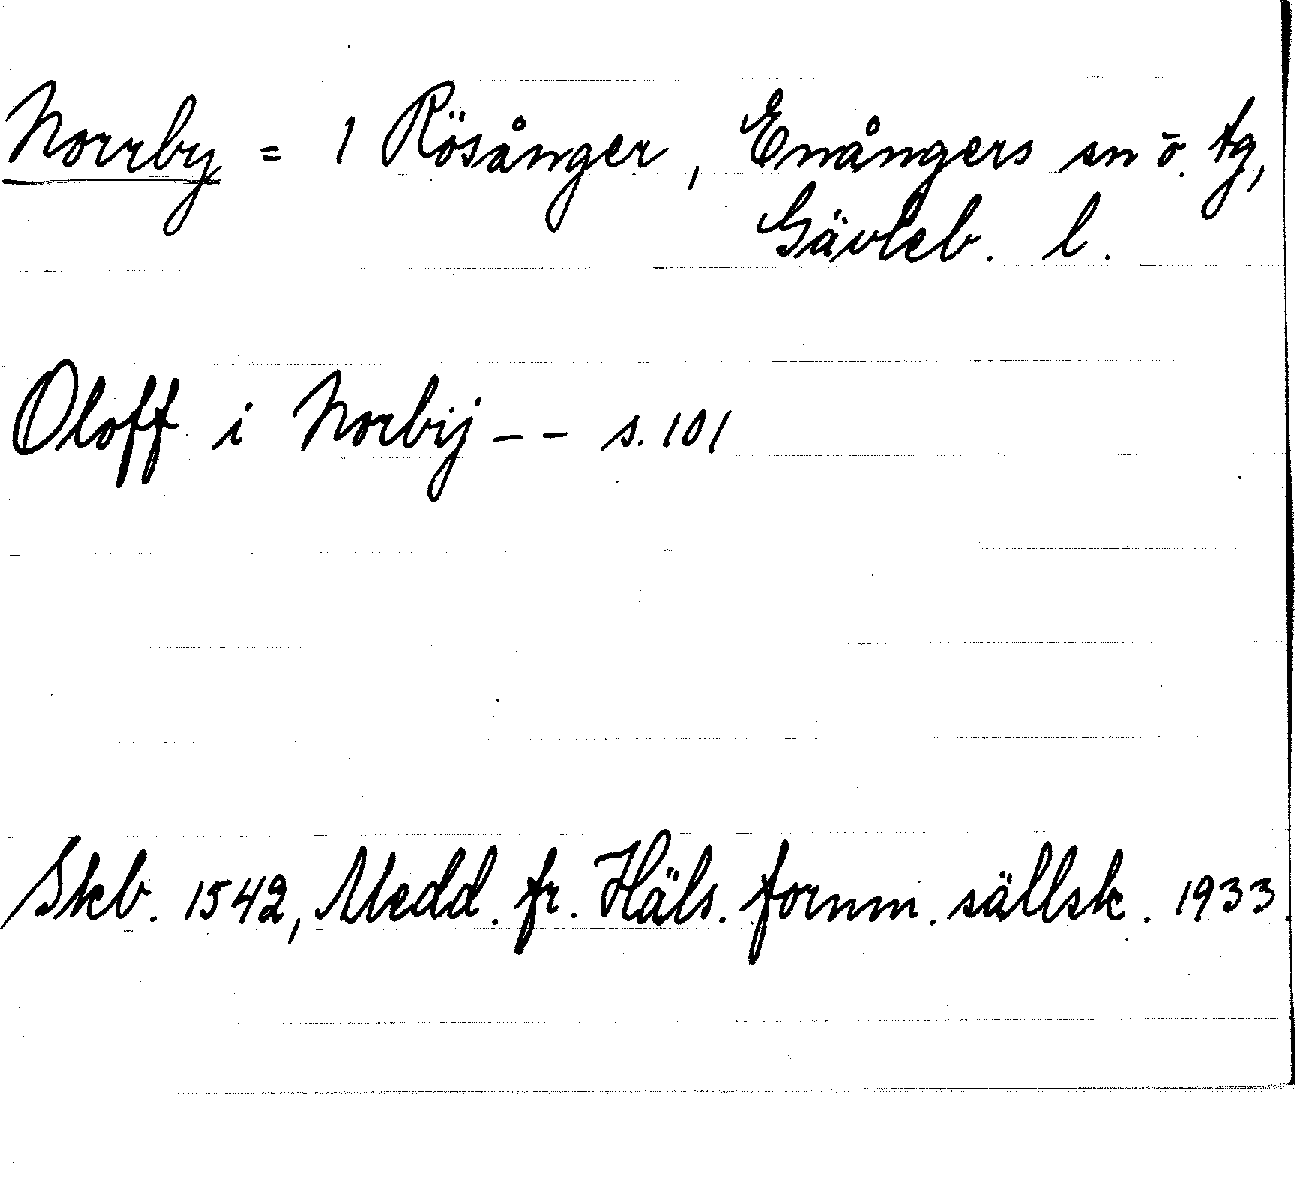 Norrby = 1 Rösånger, Enångers sn o. tg,
Gävleb. l.
Oloff i Norbij -- s. 101
Skb. 1542, Medd. fr. Häls. fornm. sällsk. 1933.